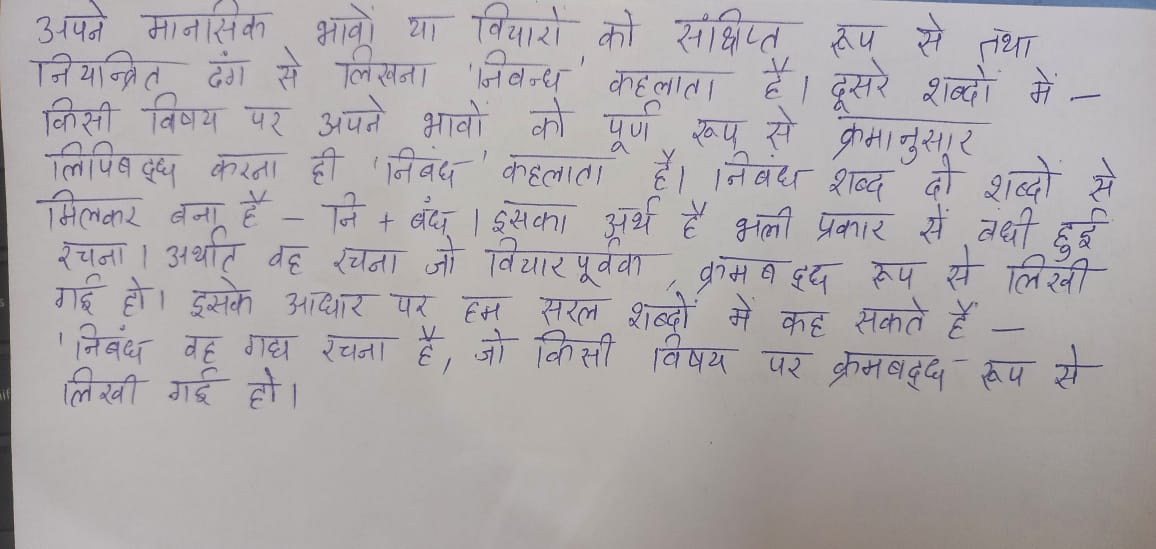 अपने मानसिक भावों या विचारों को संक्षिप्त रूप से तथा
नियन्त्रित ढंग से लिखना 'निबन्ध' कहलाता है। दूसरे शब्दों में –
किसी विषय पर अपने भावों को पूर्ण रूप से क्रमानुसार
लिपिबद्ध करना ही 'निबंध' कहलाता है। निबंध शब्द दो शब्दों से
मिलकर बना है – नि + बंध। इसका अर्थ है भली प्रकार से बंधी हुई
रचना। अर्थात वह रचना जो विचारपूर्वक, क्रमबद्ध रूप से लिखी
गई हो। इसके आधार पर हम सरल शब्दों में कह सकते हैं –
'निबंध वह गद्य रचना है, जो किसी विषय पर क्रमबद्ध रूप से
लिखी गई हो।